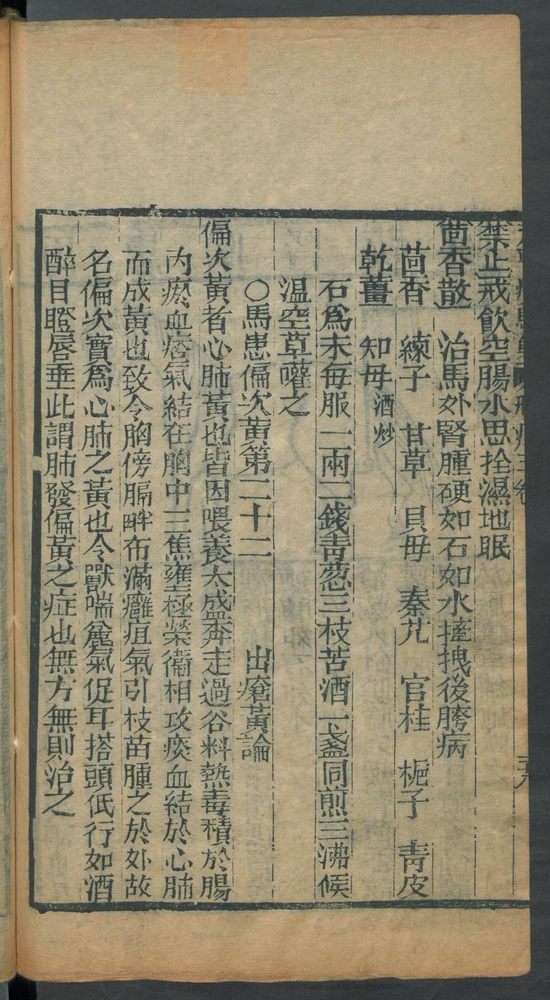 禁止戒飲空腸水思拴濕地眠
茴香散　治馬外腎腫硬如石如水擁拽後胯病
茴香　練子　甘草　貝母　秦艽　官桂　梔子　青皮
乾薑　知母酒炒
石為末每服一兩二錢青葱三枝苦酒一盞同煎三沸候
温空草嚾之
○馬患偏次黄第二十二　出瘡黄論
偏次黄者心肺黄也皆因喂養太盛奔走過谷料熱毒積於腸
内瘀血痞氣結在胸中三焦壅極榮衛相攻痰血結於心肺
而成黄也致令胸傍膈畔布滿癰疽氣引枝苗腫之於外故
名偏次實為心肺之黄也令獸喘麄氣促耳搭頭低行如酒
醉目瞪唇垂此謂肺發偏黄之症也無方無則治之